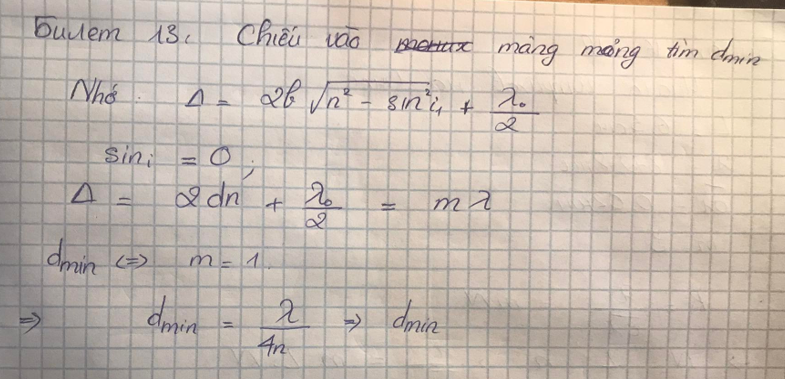 Билет 13. Chiếu vào màng mỏng tìm dmin
Nhớ: Δ = 2b √(n² - sin²i₁) + λ₀/2
sini = 0;
Δ = 2dn + λ₀/2 = mλ
dmin <=> m = 1.
=> dmin = λ/4n => dmin